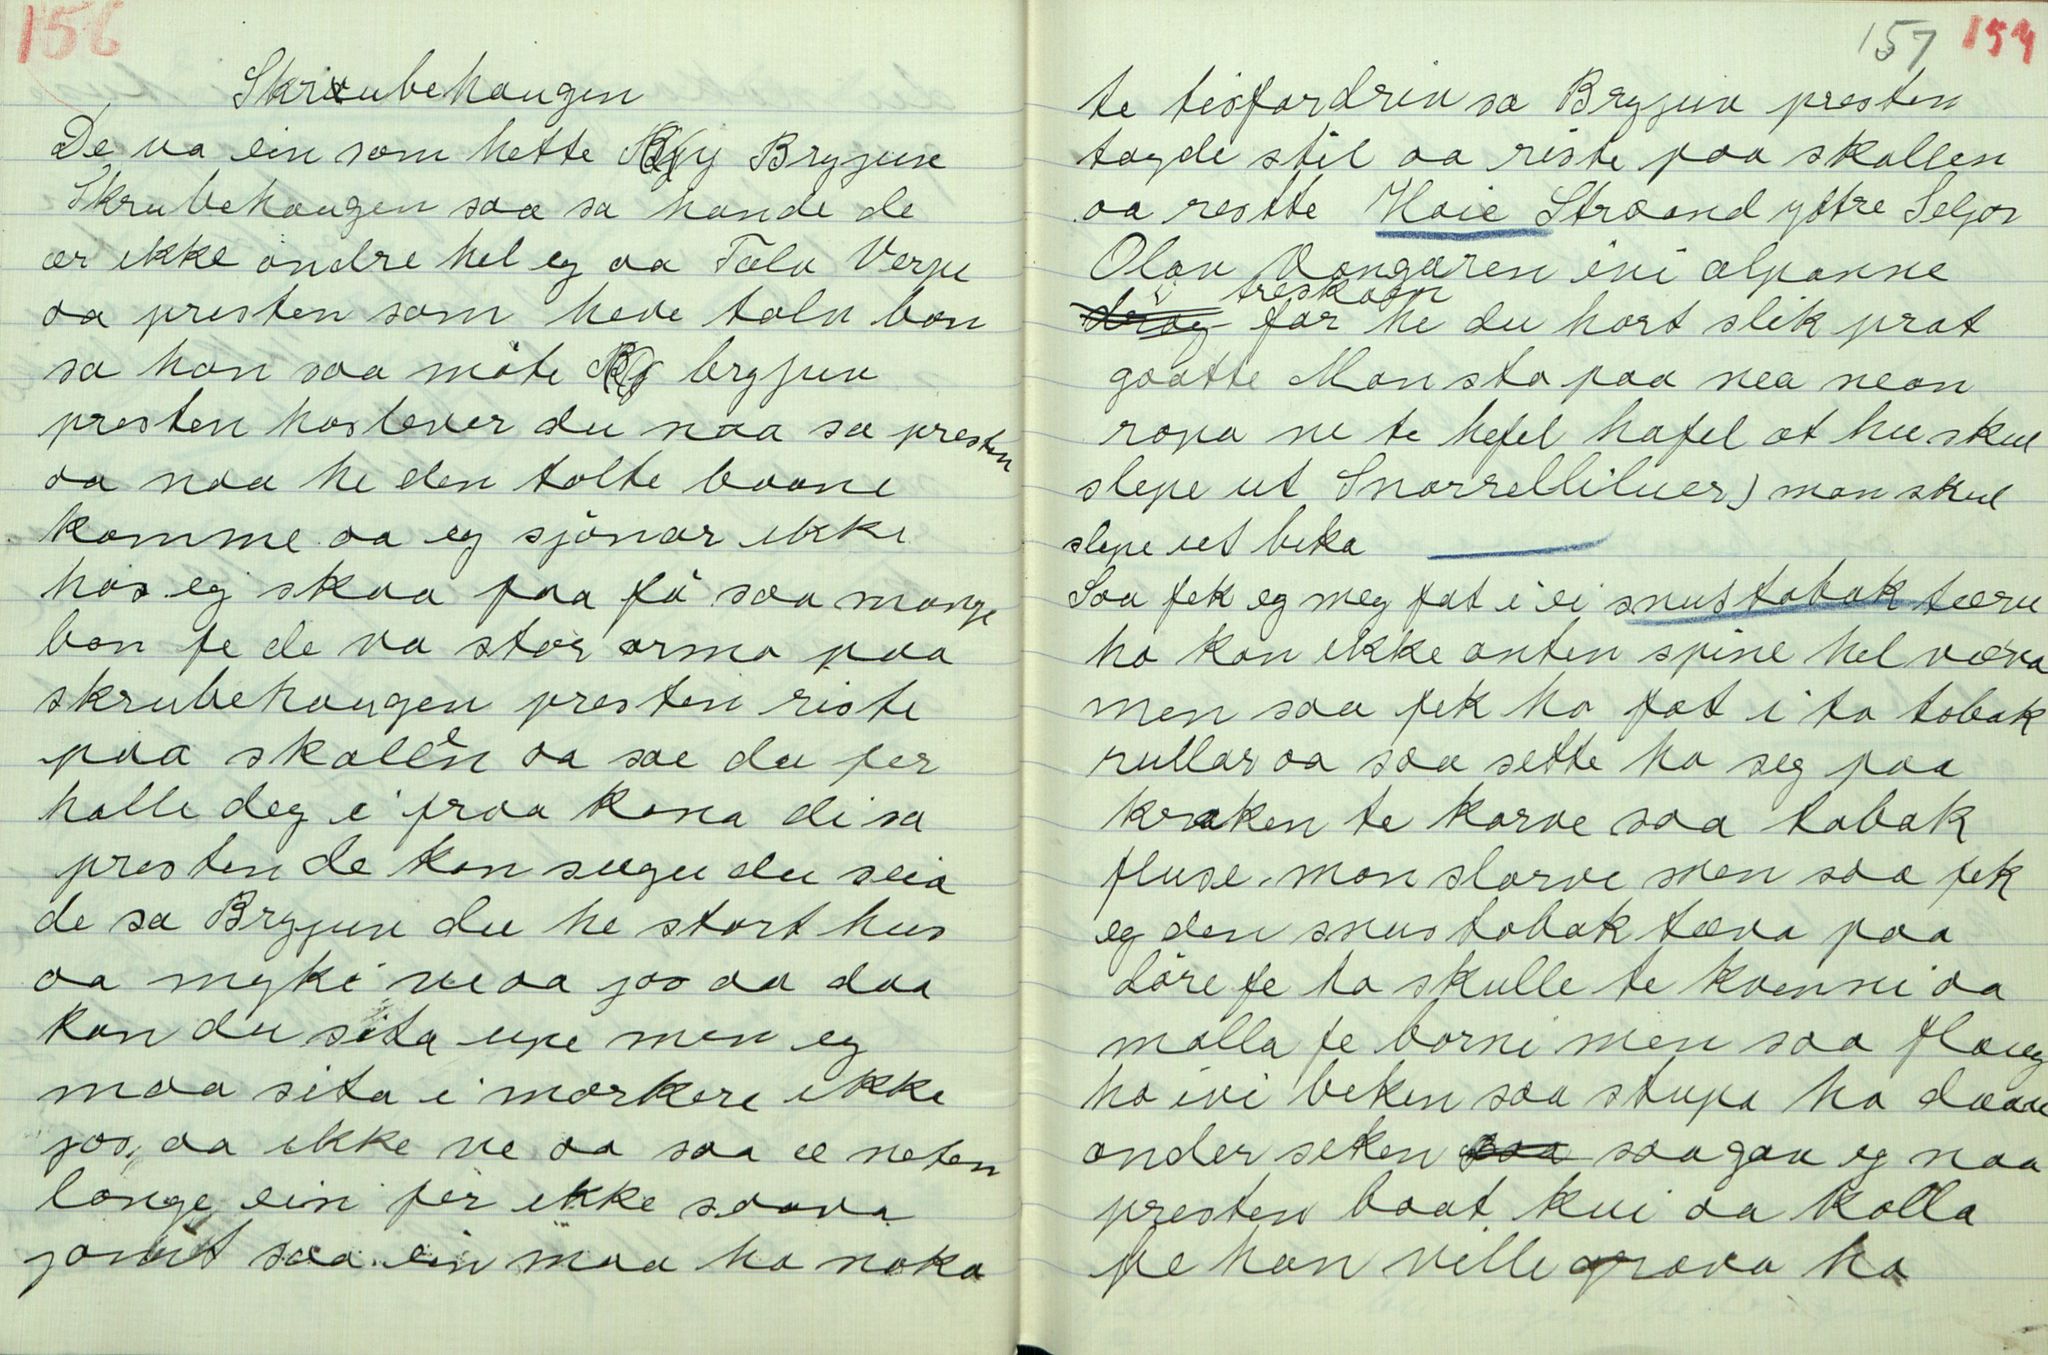 156
Skrubehaugen
De va ein som hette Bryjuv
Skrubehaugen saa sa hande de
ær ikke andre hel eg aa Talv Verpe
aa presten som heve talv bon
sa han saa møte bryjuv
presten hoslever du naa sa presten
aa naa he den tolte baane
komme aa eg sjönar ikke
hos eg skaa faa fö saa mange
bon fe de va stor arma paa
skrubehaugen presten riste
paa skallen aa sae du fer
halle deg i fraa kona di sa
presten de kan sugu du seia
de sa Bryjuv du he stort hus
aa myki ve aa jos aa daa
kan du sita upe men eg
maa sita i morkere ikke
jos aa ikke ve aa saa æ neten
lange ein fer ikke saava
jamt saa ein maa ha noka
157 154
te tisfordrin sa Bryjuv presten
tagde stil aa riste paa skallen
aa restte Haie Straand yttre Seljor
Olav Vangaren ini alpanne
i treskoen
far he du hort slik prat
gaatte Mansta paa nea nean
ropa ne te hefel hafel at hu skul
slepe ut Snorrelliluer) man skul
slepe ut beka
Saa fek eg meg fat i ei snustobak tæve
ho kan ikke anten spine hel væva
men saa fek ho fat i to tobak
rullar aa saa sette ho seg paa
kraken te karve saa tobak
fluse man slarve men saa fek
eg den snustobak tæva paa
döre fe ho skulle te kvenni aa
malla fe borni men saa flaug
ho ivi beken saa stupa ho daaue
onder seken saa gav eg naa
presten baat kui aa kalla
fe han ville grava ho